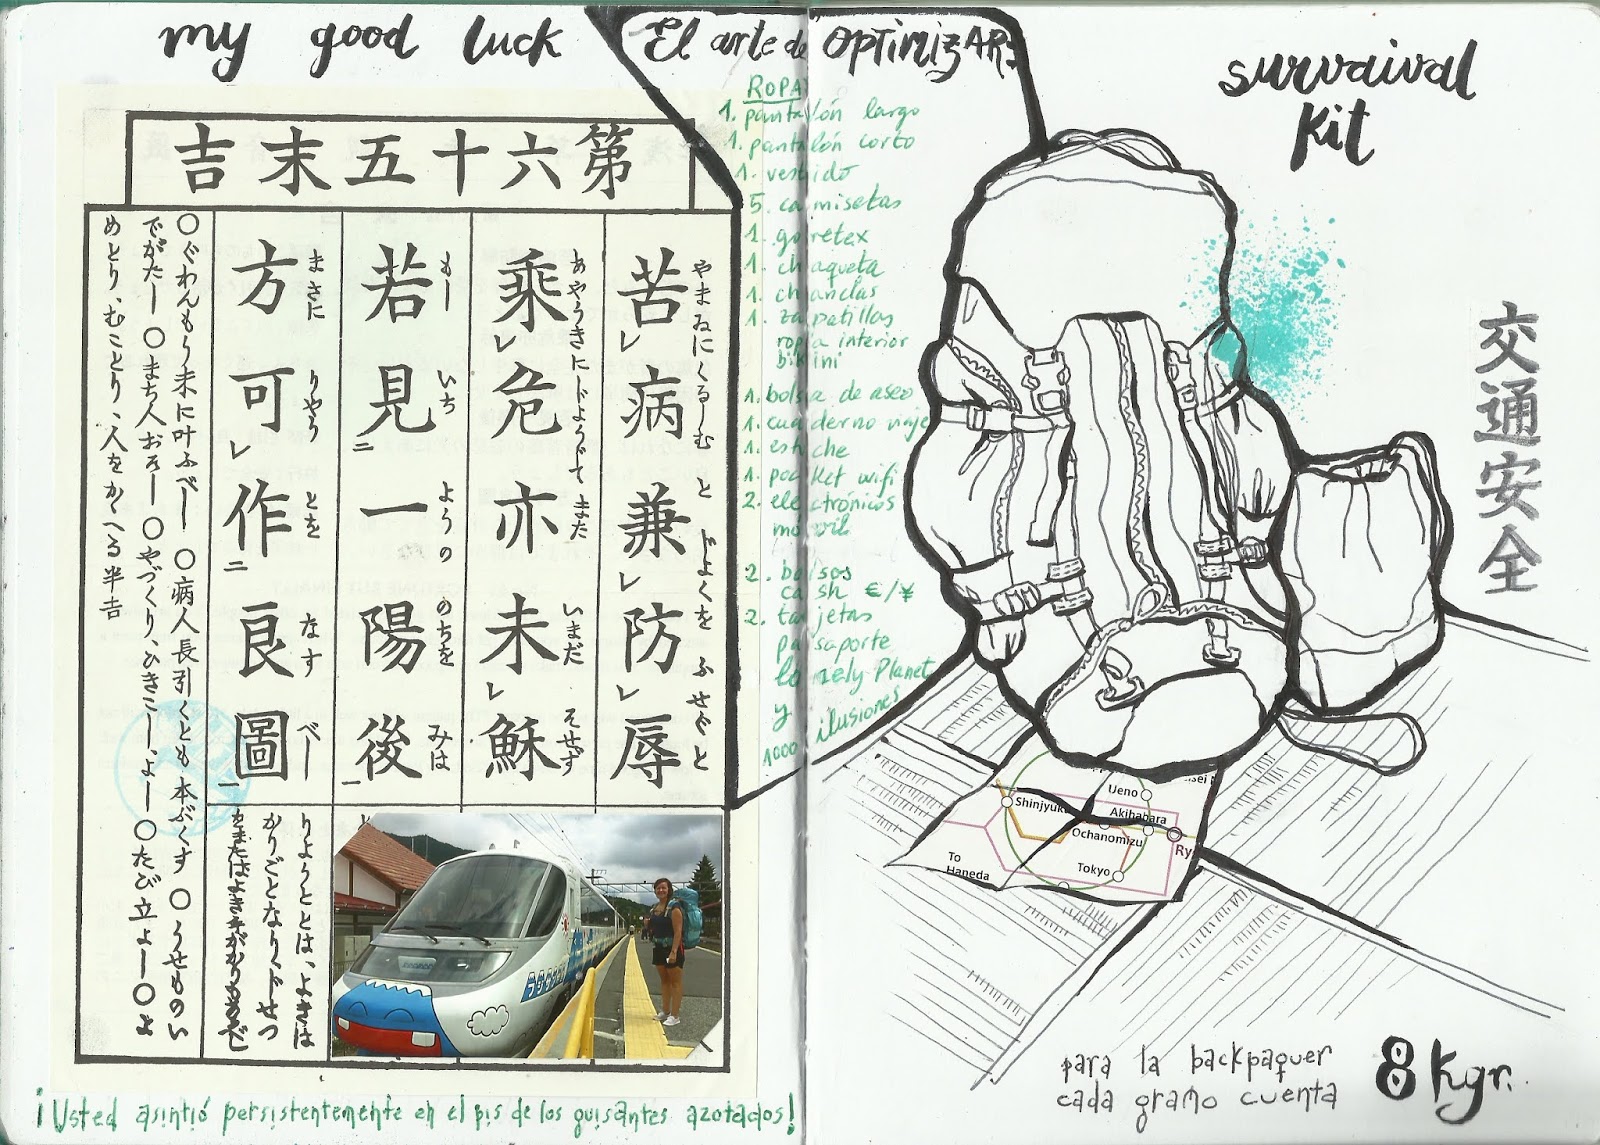 my good luck
El arte de OPTIMIZAR:
survaival
Kit
第六十五末吉
苦病兼防辱
やまゐにくるしむ と ぢよくを ふせぐと
乘危亦未穌
あやうきにじようじて また いまだ そせず
若見一陽後
もし いち ようの のちを みは
方可作良圖
まさに りやう とを なす べし
りようととは、よきは
〇ぐわんもう末に叶ふべし 〇病人長引くとも本ぶくす 〇うせものい
でがたし 〇まち人おそし 〇やづくり、ひきこし、よし 〇たび立よし 〇よ
めとり、むことり、人をかゝへる半吉
フジサン
ROPA
1. pantalón largo
1. pantalón corto
1. vestido
5. camisetas
1. goretex
1. chaqueta
1. chanclas
1. zapatillas
ropa interior
bikini
1. bolsa de aseo
1. cuaderno viaje
1. estuche
1. pocket wifi
2. electrónicos
movil
2. bolsos
cash €/¥
2. tarjetas
pasaporte
lonely Planet
y
1000 ilusiones
交通安全
Ueno
Shinjyuku
Akihabara
Ochanomizu
Ry
Tokyo
To
Haneda
para la backpaquer
cada gramo cuenta
8 Kgr.
¡Usted asintió persistentemente en el pis de los guisantes azotados!